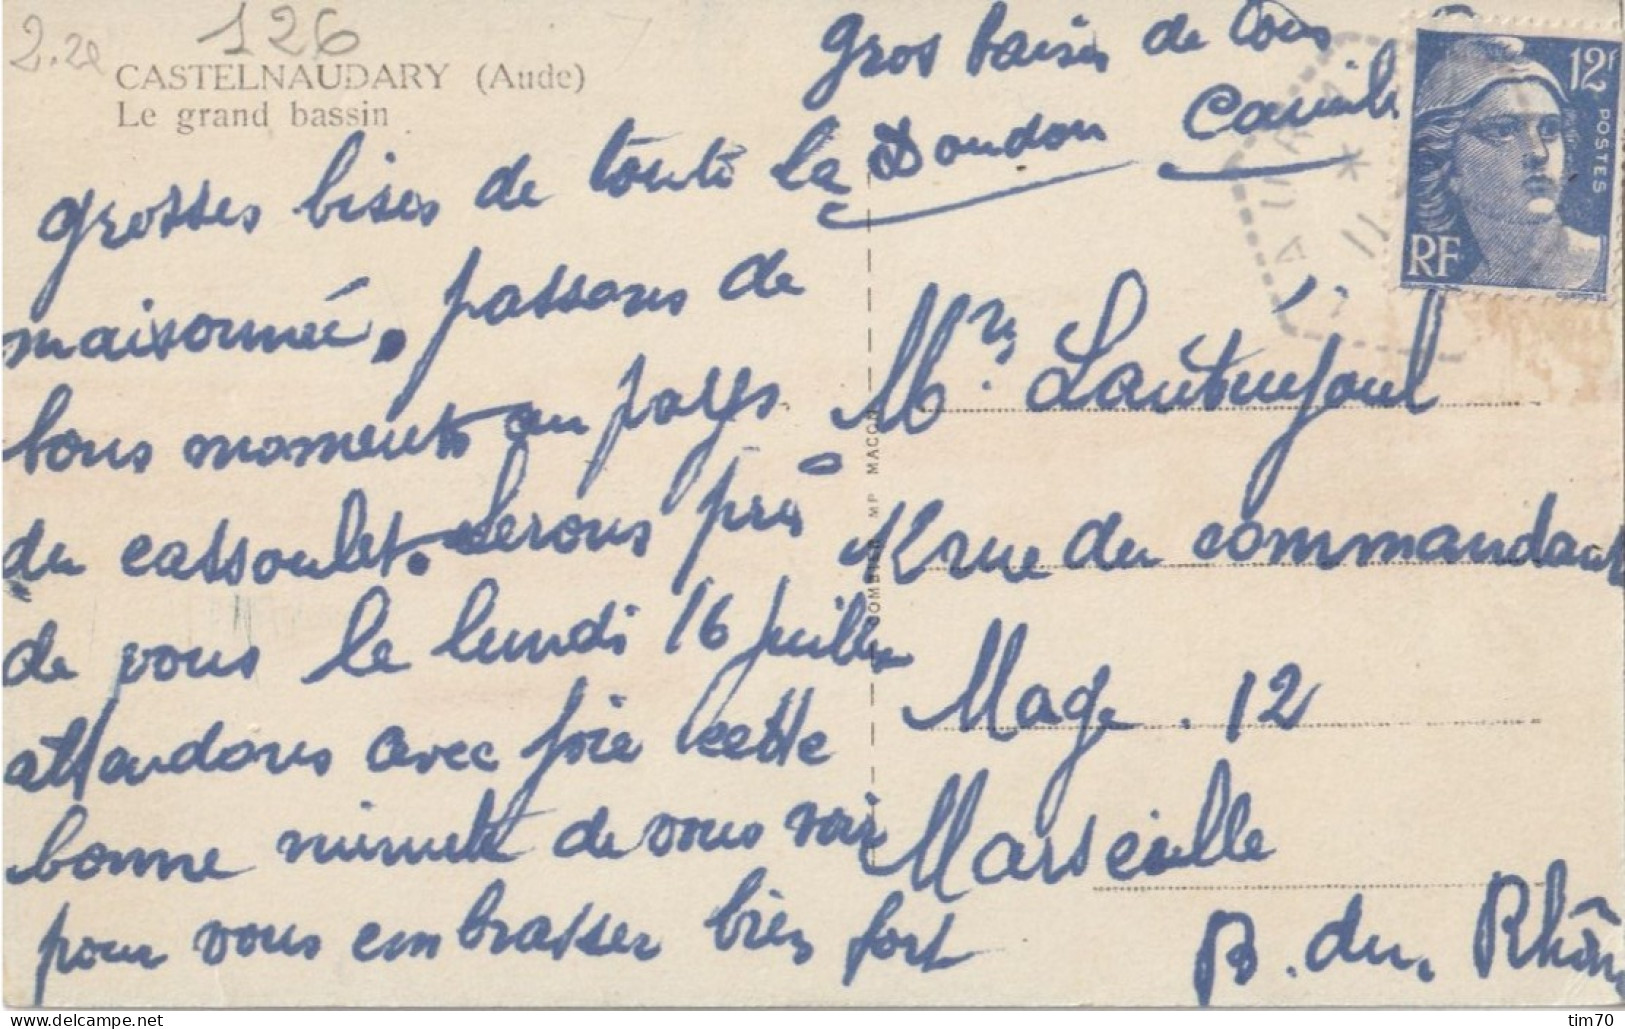 2.20
126
CASTELNAUDARY (Aude)
Le grand bassin
gros baisés de tous
la Doudon Camile
grosses bises de toute la
maisonnée, passons de
bons moments au pays
du cassoulet. Serons près
de vous le lundi 16 juillet
attendons avec joie cette
bonne minute de vous voir
pour vous embrasser bien fort
12F
POSTES
RF
11
COMBIER IMP MACON
Mr. Lautenjoul
12 rue du commandant
Mage. 12
Marseille
B. du. Rhône
tim70